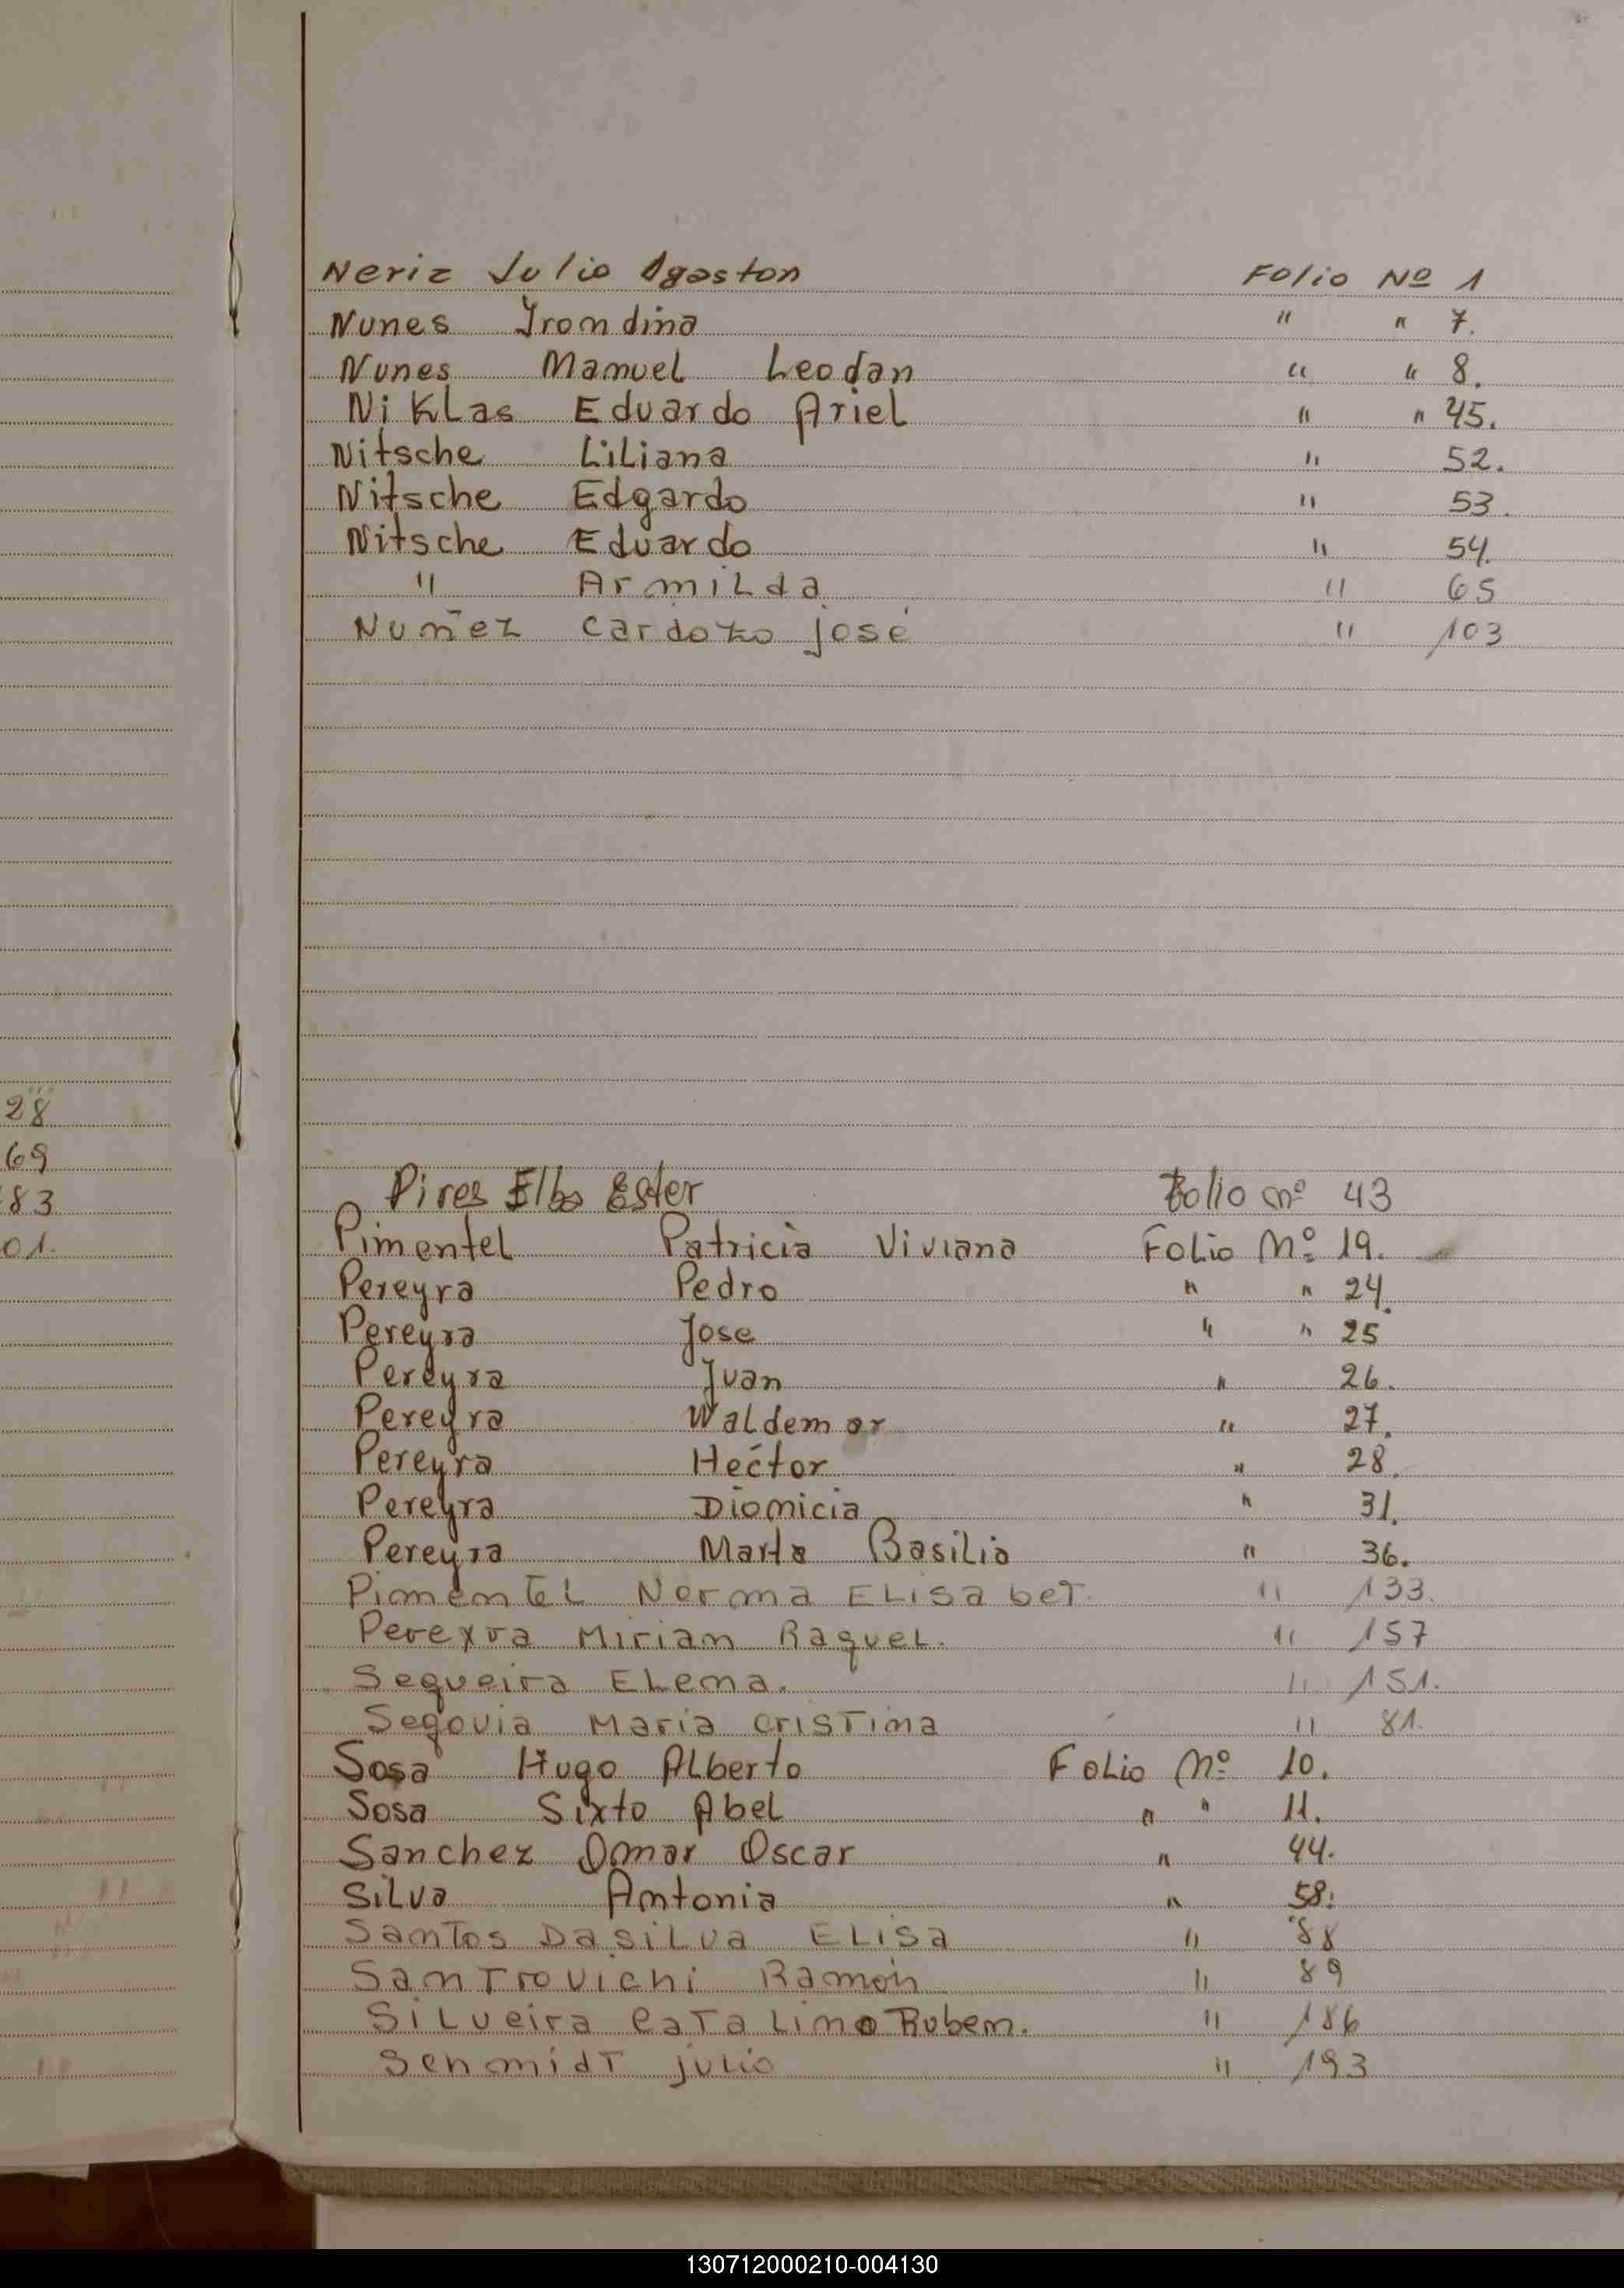 Neriz Julio Agoston Folio Nº 1
Nunes Irondina " " 7.
Nunes Manuel Leodan " " 8.
Niklas Eduardo Ariel " " 45.
Nitsche Liliana " 52.
Nitsche Edgardo " 53.
Nitsche Eduardo " 54.
" Armilda " 65
Nuñez Cardozo José " 103
28
69
83
01.
Pires Elba Ester Folio nº 43
Pimentel Patricia Viviana Folio Nº 19.
Pereyra Pedro " " 24.
Pereyra Jose " " 25
Pereyra Juan " 26.
Pereyra Waldemar " 27.
Pereyra Hector " 28.
Pereyra Dionicia " 31.
Pereyra Marta Basilia " 36.
Pimentel Norma Elisabet. " 133.
Perexra Mirian Raquel. " 157
Sequeira Elena. " 151.
Segovia Maria Cristina " 81.
Sosa Hugo Alberto Folio Nº 10.
Sosa Sixto Abel " " 11.
Sanchez Omar Oscar " 44.
Silva Antonia " 58.
Santos Dasilva Elisa " 88
Santrovichi Ramón " 89
Silveira Catalino Ruben. " 186
Schmidt julio " 193
130712000210-004130